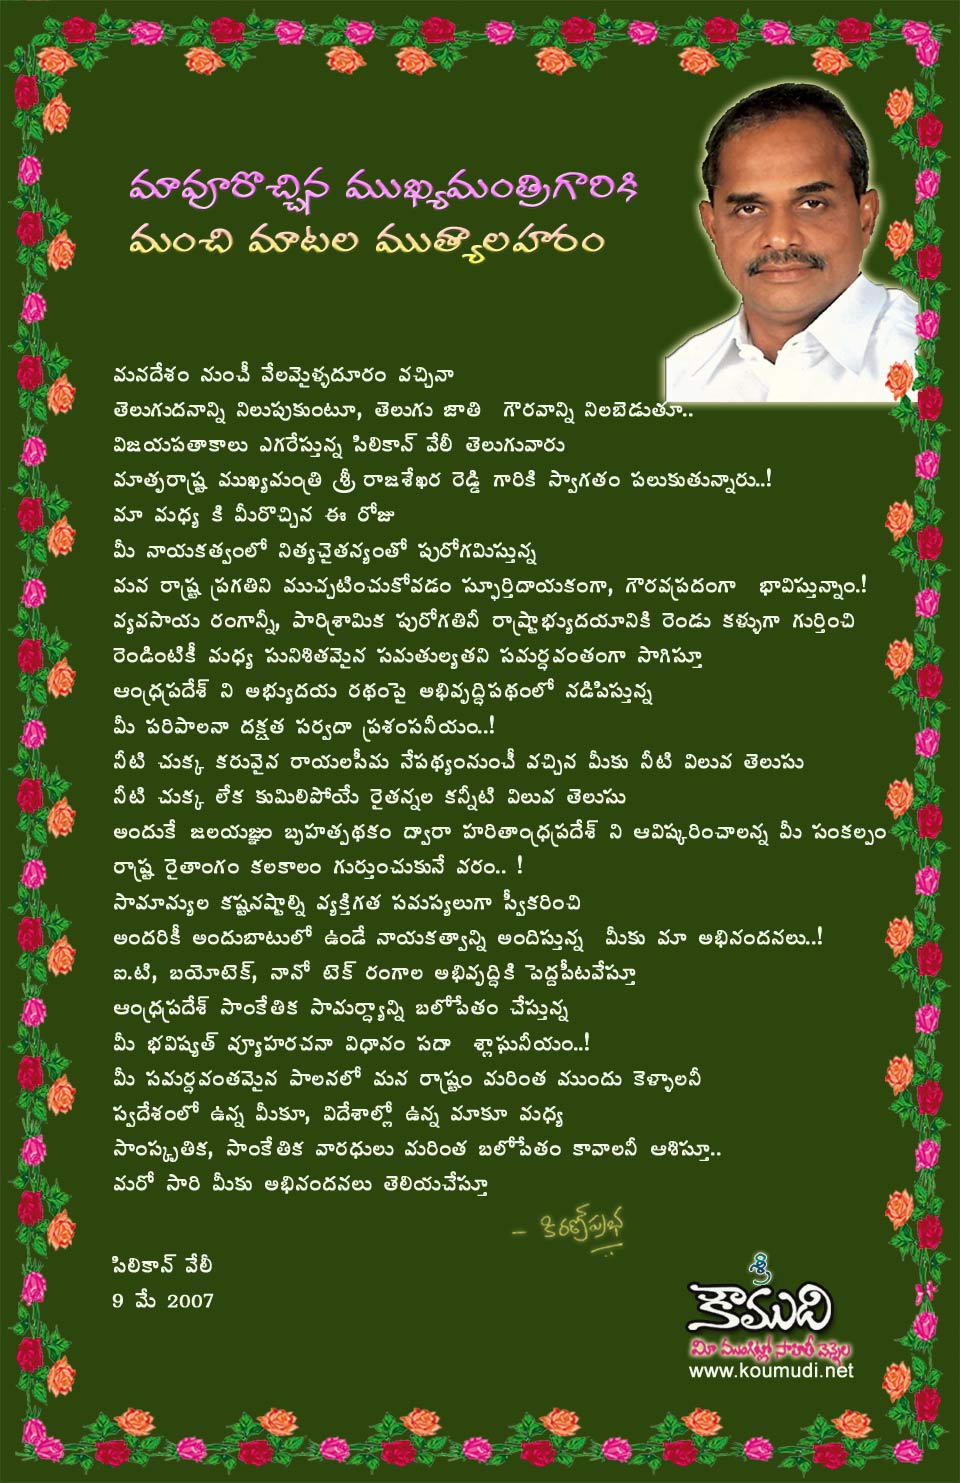 మావూరొచ్చిన ముఖ్యమంత్రిగారికి
మంచి మాటల ముత్యాలహారం
మనదేశం నుంచీ వేలమైళ్ళదూరం వచ్చినా
తెలుగుదనాన్ని నిలుపుకుంటూ, తెలుగు జాతి గౌరవాన్ని నిలబెడుతూ..
విజయపతాకాలు ఎగరేస్తున్న సిలికాన్ వేలీ తెలుగువారు
మాతృరాష్ట్ర ముఖ్యమంత్రి శ్రీ రాజశేఖర రెడ్డి గారికి స్వాగతం పలుకుతున్నారు..!
మా మధ్య కి మీరొచ్చిన ఈ రోజు
మీ నాయకత్వంలో నిత్యచైతన్యంతో పురోగమిస్తున్న
మన రాష్ట్ర ప్రగతిని ముచ్చటించుకోవడం స్ఫూర్తిదాయకంగా, గౌరవప్రదంగా భావిస్తున్నాం.!
వ్యవసాయ రంగాన్నీ, పారిశ్రామిక పురోగతినీ రాష్ట్రాభ్యుదయానికి రెండు కళ్ళుగా గుర్తించి
రెండింటికీ మధ్య సునిశితమైన సమతుల్యతని సమర్ధవంతంగా సాగిస్తూ
ఆంధ్రప్రదేశ్ ని అభ్యుదయ రథంపై అభివృద్దిపథంలో నడిపిస్తున్న
మీ పరిపాలనా దక్షత సర్వదా ప్రశంసనీయం..!
నీటి చుక్క కరువైన రాయలసీమ నేపథ్యంనుంచీ వచ్చిన మీకు నీటి విలువ తెలుసు
నీటి చుక్క లేక కుమిలిపోయే రైతన్నల కన్నీటి విలువ తెలుసు
అందుకే జలయజ్ఞం బృహత్పథకం ద్వారా హరితాంధ్రప్రదేశ్ ని ఆవిష్కరించాలన్న మీ సంకల్పం
రాష్ట్ర రైతాంగం కలకాలం గుర్తుంచుకునే వరం.. !
సామాన్యుల కష్టనష్టాల్ని వ్యక్తిగత సమస్యలుగా స్వీకరించి
అందరికీ అందుబాటులో ఉండే నాయకత్వాన్ని అందిస్తున్న మీకు మా అభినందనలు..!
ఐ.టి, బయోటెక్, నానో టెక్ రంగాల అభివృద్దికి పెద్దపీటవేస్తూ
ఆంధ్రప్రదేశ్ సాంకేతిక సామర్ధ్యాన్ని బలోపేతం చేస్తున్న
మీ భవిష్యత్ వ్యూహరచనా విధానం సదా శ్లాఘనీయం..!
మీ సమర్ధవంతమైన పాలనలో మన రాష్ట్రం మరింత ముందు కెళ్ళాలనీ
స్వదేశంలో ఉన్న మీకూ, విదేశాల్లో ఉన్న మాకూ మధ్య
సాంస్కృతిక, సాంకేతిక వారధులు మరింత బలోపేతం కావాలనీ ఆశిస్తూ..
మరో సారి మీకు అభినందనలు తెలియచేస్తూ
– కిరణ్‌ప్రభ
సిలికాన్ వేలీ
9 మే 2007
శ్రీ
కౌముది
మీ ముంగిట్లో సాహితీ వెన్నెల
www.koumudi.net